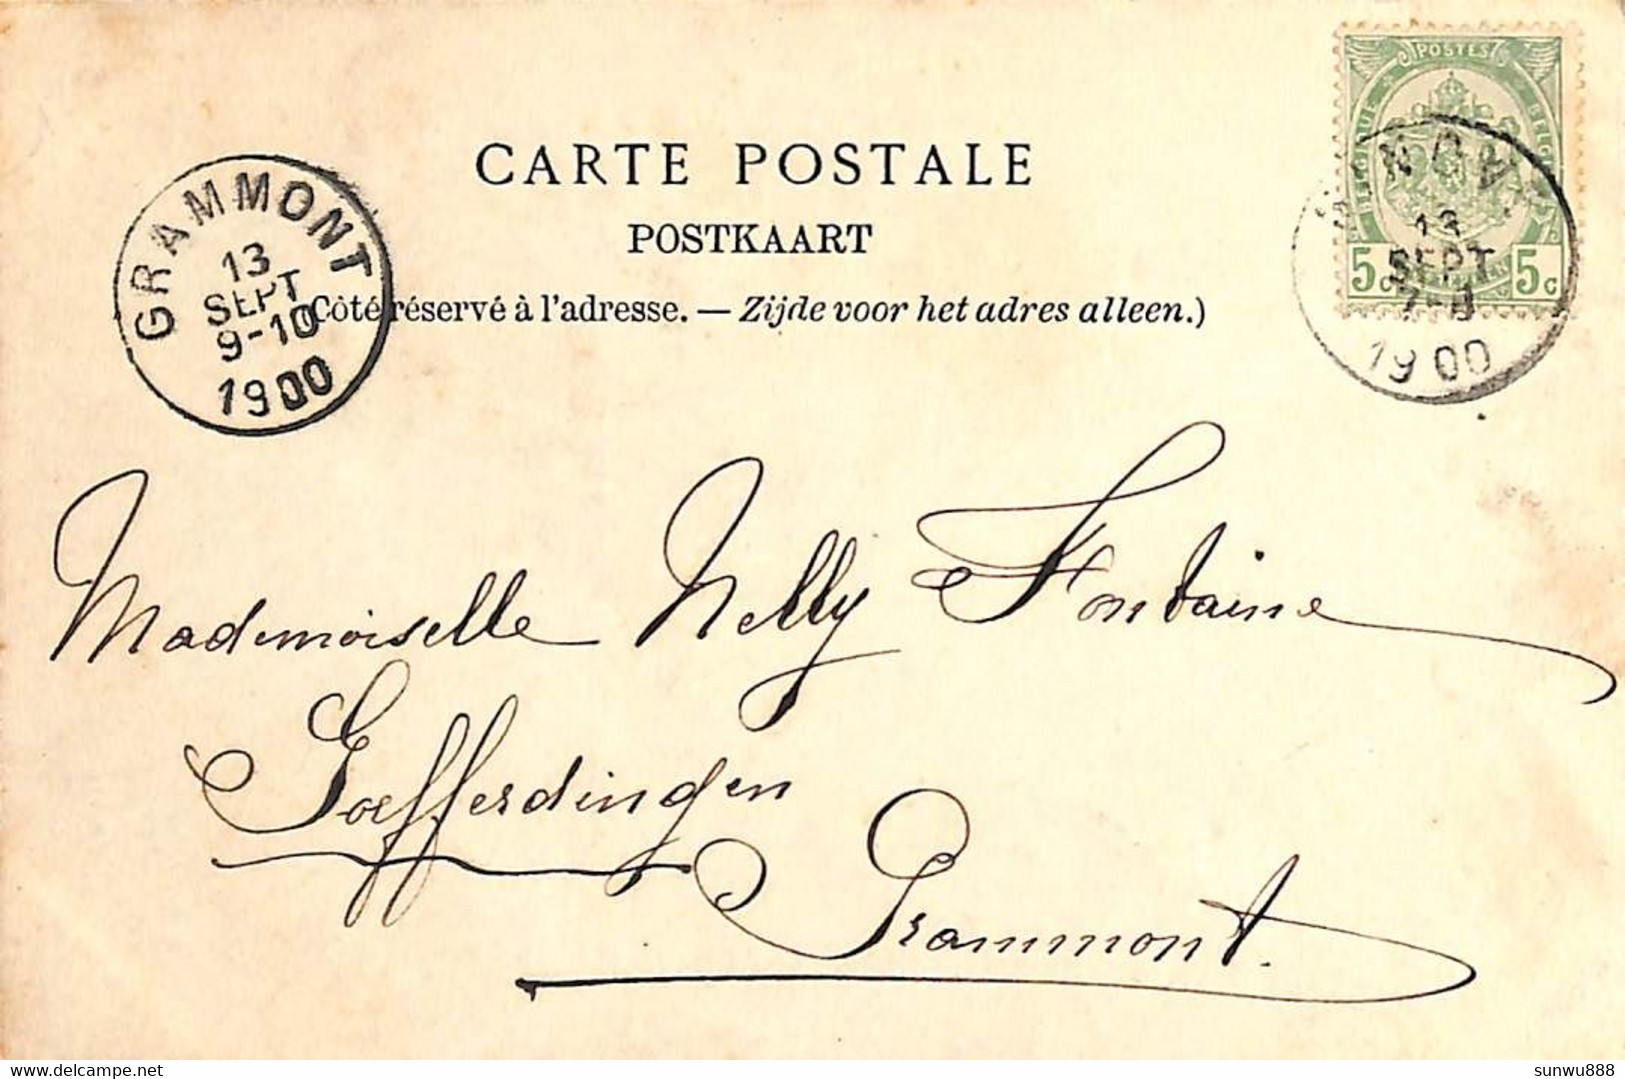 POSTES
BELGIQUE BELGIE
CARTE POSTALE
POSTKAART
GRAMMONT
13
SEPT
9-10
1900
13
SEPT
5c 5c
1900
(Côté réservé à l'adresse. — Zijde voor het adres alleen.)
Mademoiselle Nelly Fontaine
Goefferdingen
Grammont.
delcampe.net
sunwu888